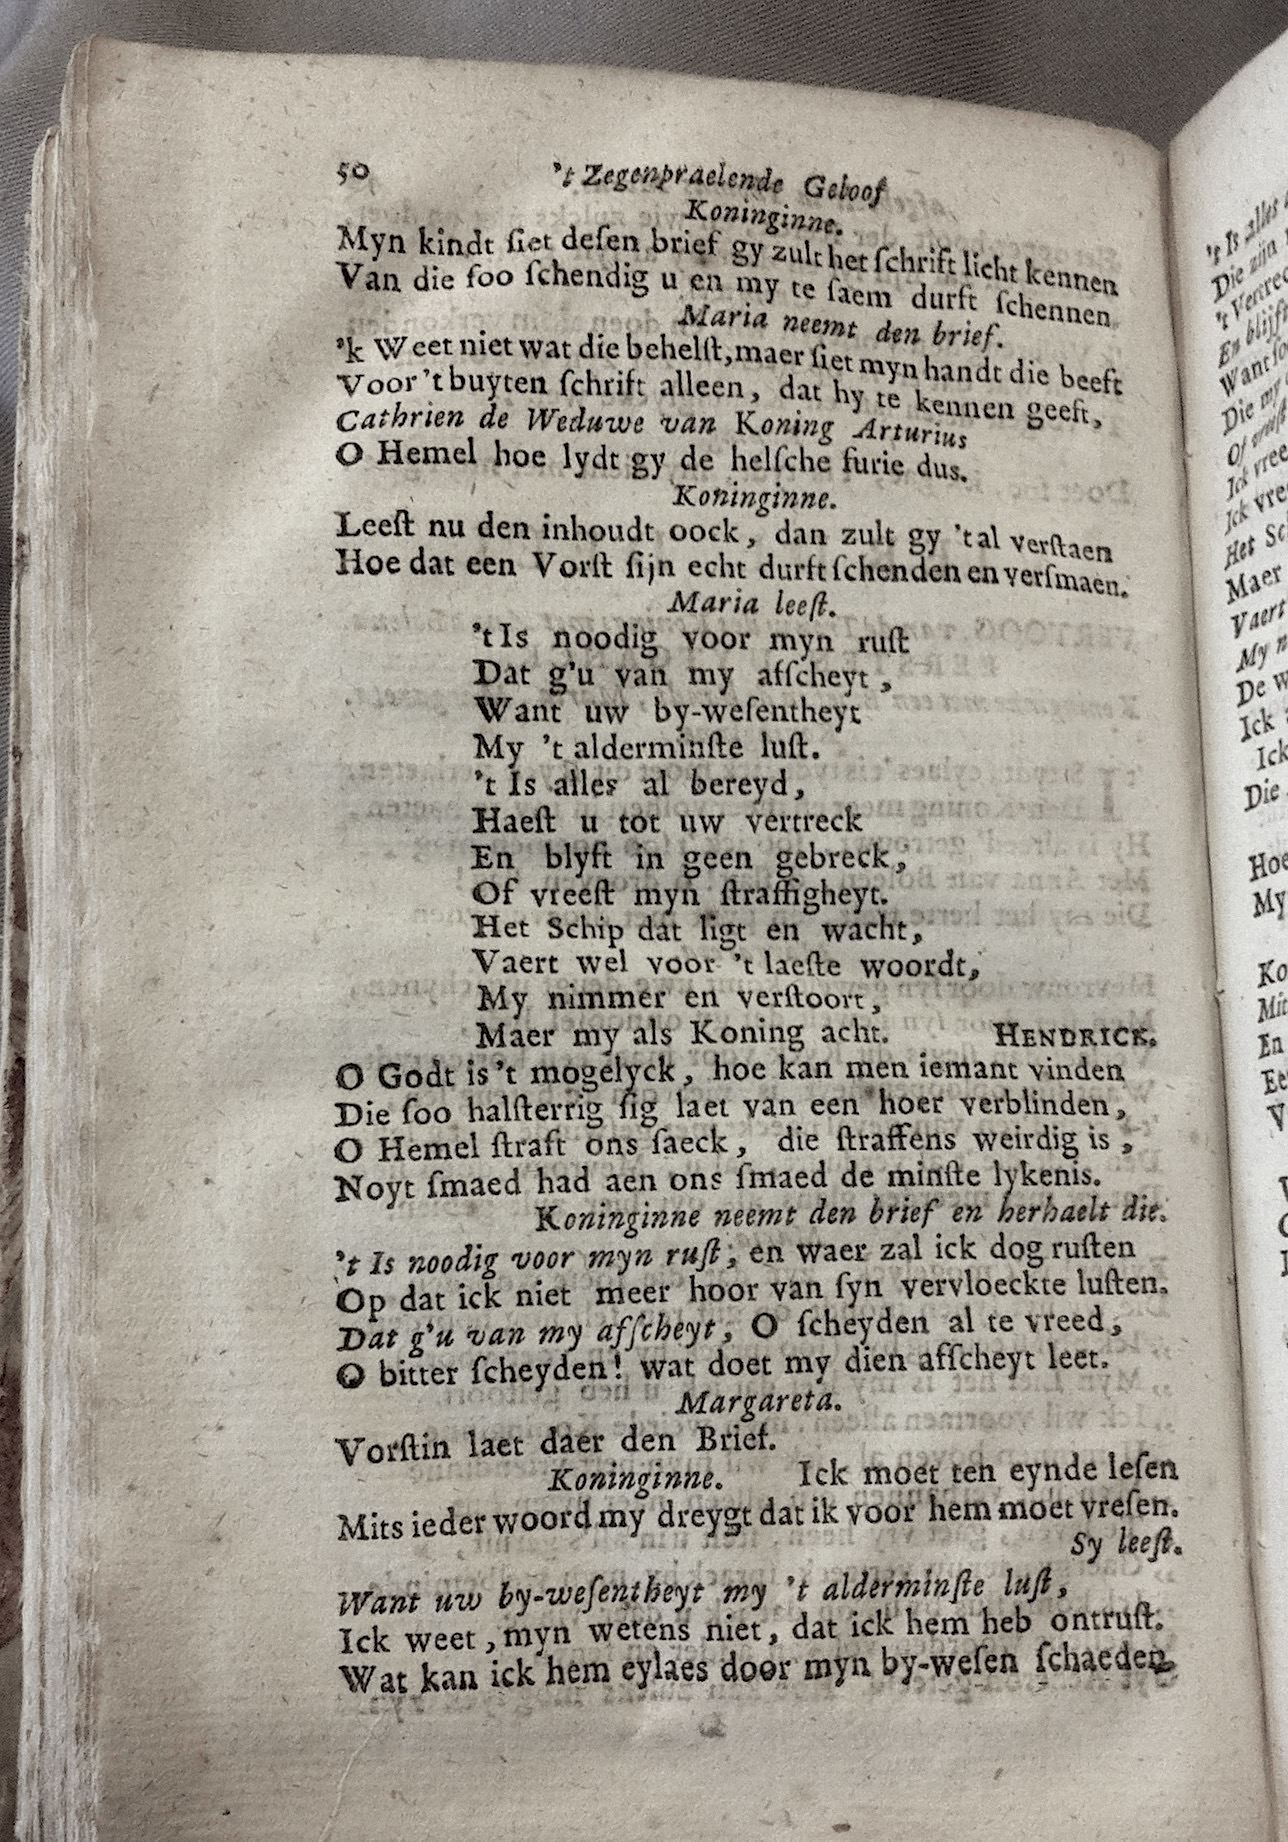 50 't Zegenpraelende Geloof
Koninginne.
Myn kindt ſiet deſen brief gy zult het ſchrift licht kennen
Van die ſoo ſchendig u en my te ſaem durft ſchennen
Maria neemt den brief.
'k Weet niet wat die behelſt, maer ſiet myn handt die beeft
Voor 't buyten ſchrift alleen, dat hy te kennen geeft,
Cathrien de Weduwe van Koning Arturius
O Hemel hoe lydt gy de helſche furie dus.
Koninginne.
Leeſt nu den inhoudt oock, dan zult gy 't al verſtaen
Hoe dat een Vorſt ſijn echt durft ſchenden en verſmaen.
Maria leeſt.
't Is noodig voor myn ruſt
Dat g'u van my afſcheyt,
Want uw by-weſentheyt
My 't alderminſte luſt.
't Is alles al bereyd,
Haeſt u tot uw vertreck
En blyft in geen gebreck,
Of vreeſt myn ſtraffigheyt.
Het Schip dat ligt en wacht,
Vaert wel voor 't laeſte woordt,
My nimmer en verſtoort,
Maer my als Koning acht. HENDRICK.
O Godt is 't mogelyck, hoe kan men iemant vinden
Die ſoo halſterrig ſig laet van een hoer verblinden,
O Hemel ſtraft ons ſaeck, die ſtraffens weirdig is,
Noyt ſmaed had aen ons ſmaed de minſte lykenis.
Koninginne neemt den brief en herhaelt die.
't Is noodig voor myn ruſt, en waer zal ick dog ruſten
Op dat ick niet meer hoor van ſyn vervloeckte luſten.
Dat g'u van my afſcheyt, O ſcheyden al te vreed,
O bitter ſcheyden! wat doet my dien afſcheyt leet.
Margareta.
Vorſtin laet daer den Brief.
Koninginne. Ick moet ten eynde leſen
Mits ieder woord my dreygt dat ik voor hem moet vreſen.
Sy leeſt.
Want uw by-weſentheyt my 't alderminſte luſt,
Ick weet, myn wetens niet, dat ick hem heb ontruſt.
Wat kan ick hem eylaes door myn by-weſen ſchaeden
't Is alles
Die zijn
't Vertrec
En blijft
Want ſoo
Die my
Ick vree
Ick vre
Het Sc
Maer
Vaert
My n
De w
Ick
Ick
Die
Hoe
My
Ko
Mit
En